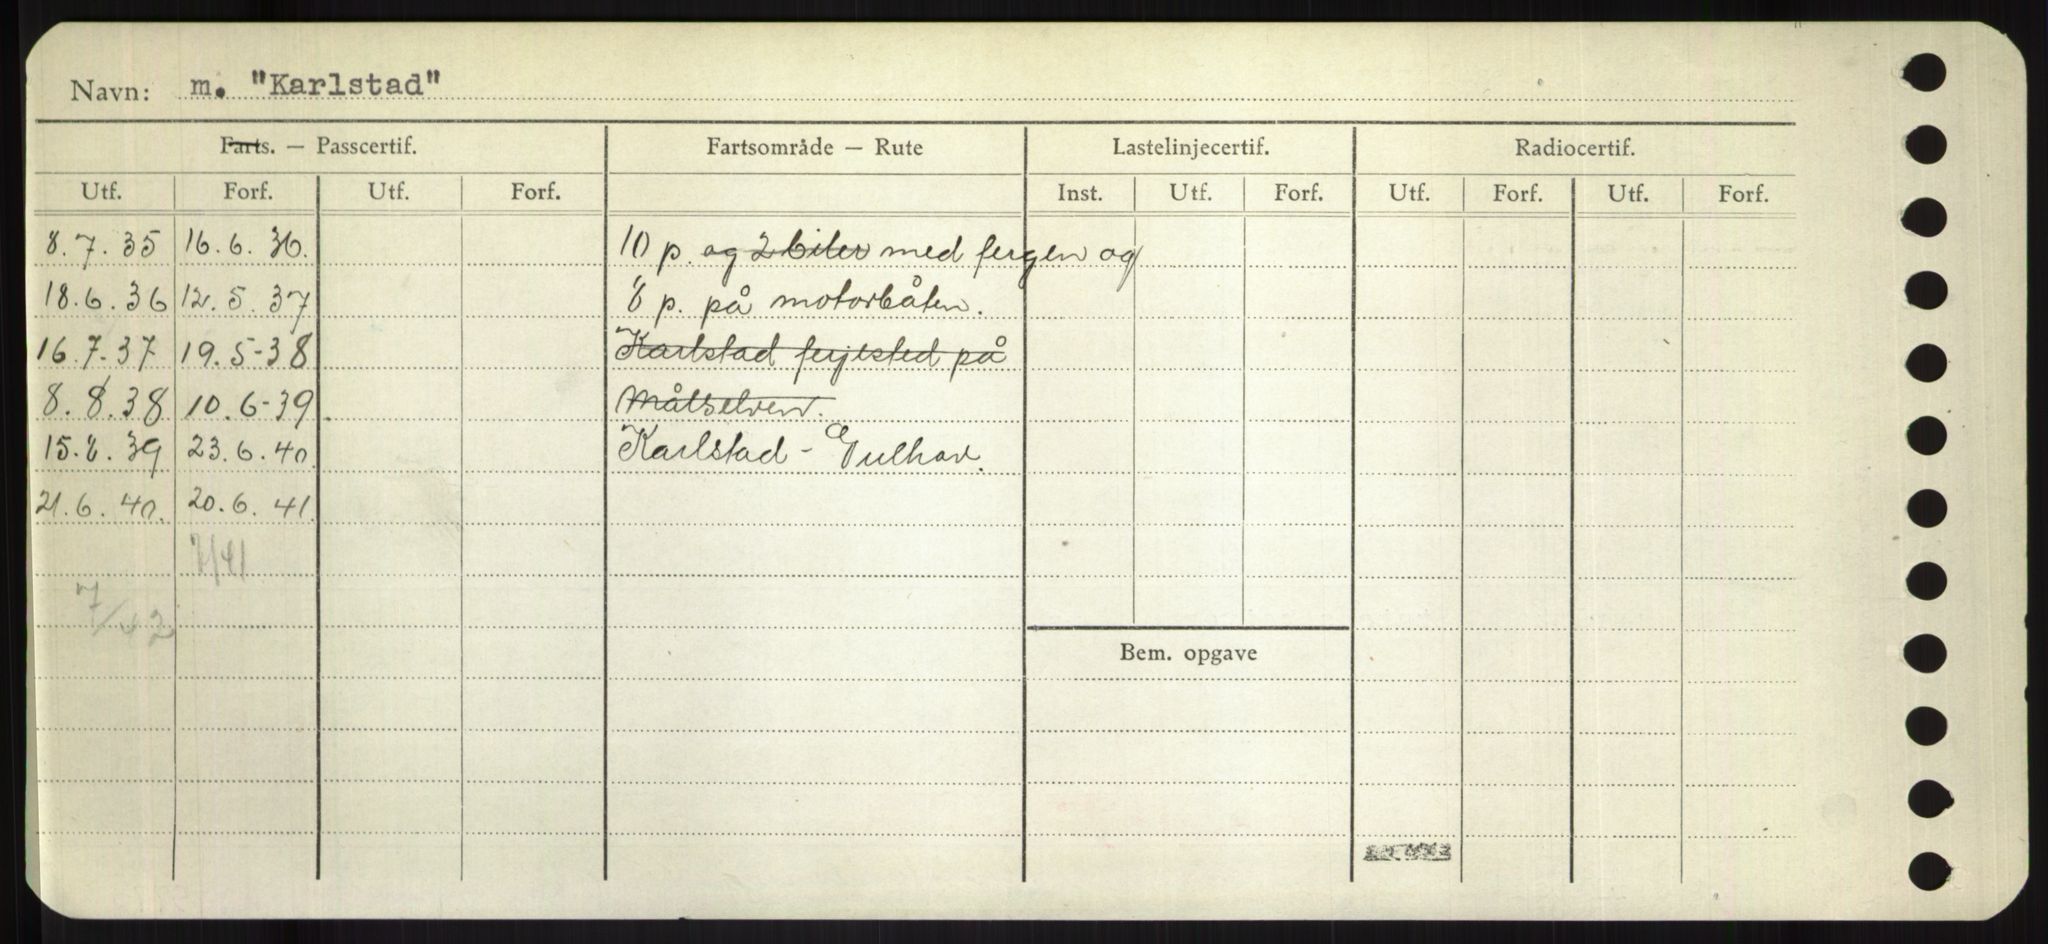 Navn: m. "Karlstad"
Farts. — Passcertif. Fartsområde — Rute Lastelinjecertif. Radiocertif.
Utf. Forf. Utf. Forf. Inst. Utf. Forf. Utf. Forf. Utf. Forf.
8.7.35 16.6.36. 10 p. og 2 biler med fergen og
18.6.36 12.5.37 8 p. på motorbåten.
16.7-37 19.5-38 Karlstad ferjested på
8.8.38 10.6-39. Målselven.
15.8.39 23.6.40 Karlstad -
21.6.40. 20.6.41.
7/41
7/42
Bem. opgave